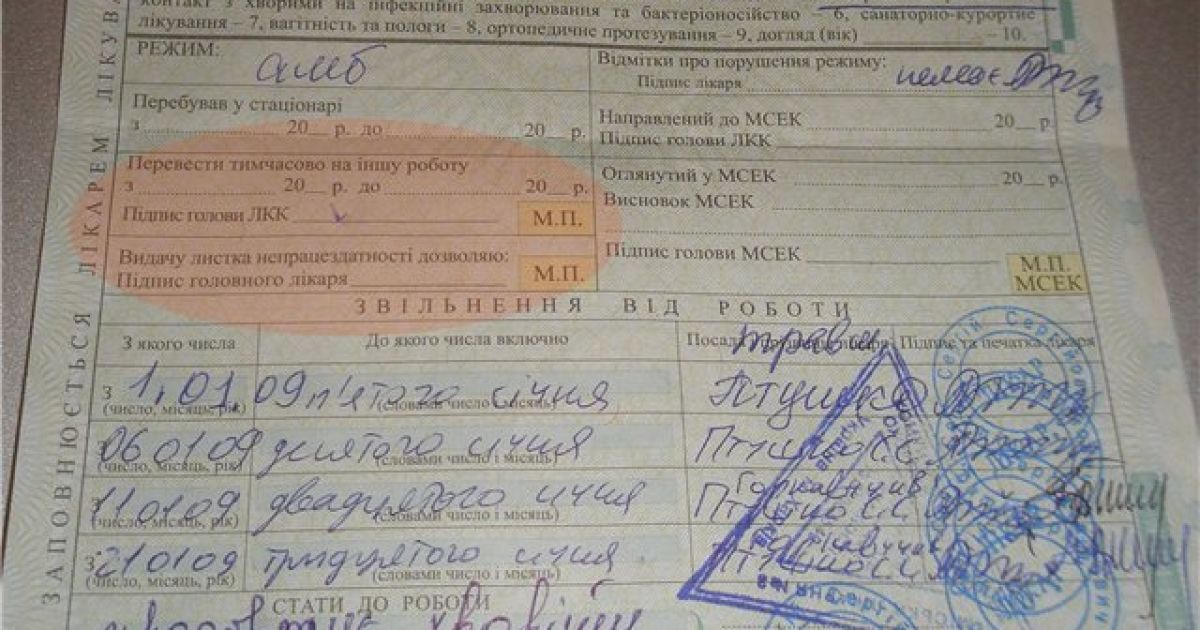 контакт з хворими на інфекційні захворювання та бактеріоносійство – 6, санаторно-курортне
лікування – 7, вагітність та пологи – 8, ортопедичне протезування – 9, догляд (вік) – 10.
РЕЖИМ: амб
Відмітки про порушення режиму: немає
Підпис лікаря
Перебував у стаціонарі
з 20__ р. до 20__ р.
Направлений до МСЕК 20__ р.
Підпис голови ЛКК
Перевести тимчасово на іншу роботу
з 20__ р. до 20__ р.
Підпис голови ЛКК М.П.
Оглянутий у МСЕК 20__ р.
Висновок МСЕК
Видачу листка непрацездатності дозволяю:
Підпис головного лікаря М.П.
Підпис голови МСЕК
М.П.
МСЕК
ЗВІЛЬНЕННЯ ВІД РОБОТИ
З якого числа До якого числа включно Посада Підпис та печатка лікаря
травм
З 1.01.09 п'ятого січня
(число, місяць, рік) (словами число і місяць)
06 01 09 десятого січня
(число, місяць, рік) (словами число і місяць)
11 01 09 двадцятого січня
(число, місяць, рік) (словами число і місяць)
З 21 01 09 тридцятого січня
(число, місяць, рік) (словами число і місяць)
СТАТИ ДО РОБОТИ
ЗАПОВНЮЄТЬСЯ ЛІКАРЕМ